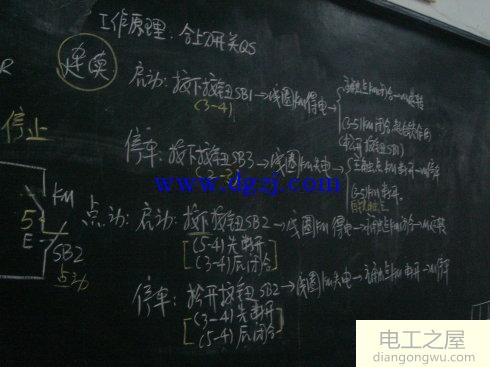 工作原理：合上刀开关QS
连续
启动：按下按钮SB1→线圈KM得电→
(3-4)
主触点KM闭合→M运转
(3-5)KM闭合起自锁作用
(松开按钮SB1)
停车：按下按钮SB3→线圈KM失电→
主触点KM断开→M停车
(3-5)KM断开
R
停止
KM
5
E
SB2
点动
点动：启动：按下按钮SB2→线圈KM得电→主触点KM闭合→M运转
(5-4)先断开
(3-4)后闭合
停车：松开按钮SB2→线圈KM失电→主触点KM断开→M停车
(3-4)先断开
(5-4)后闭合
www.dgzj.com
电工之屋
diangongwu.com